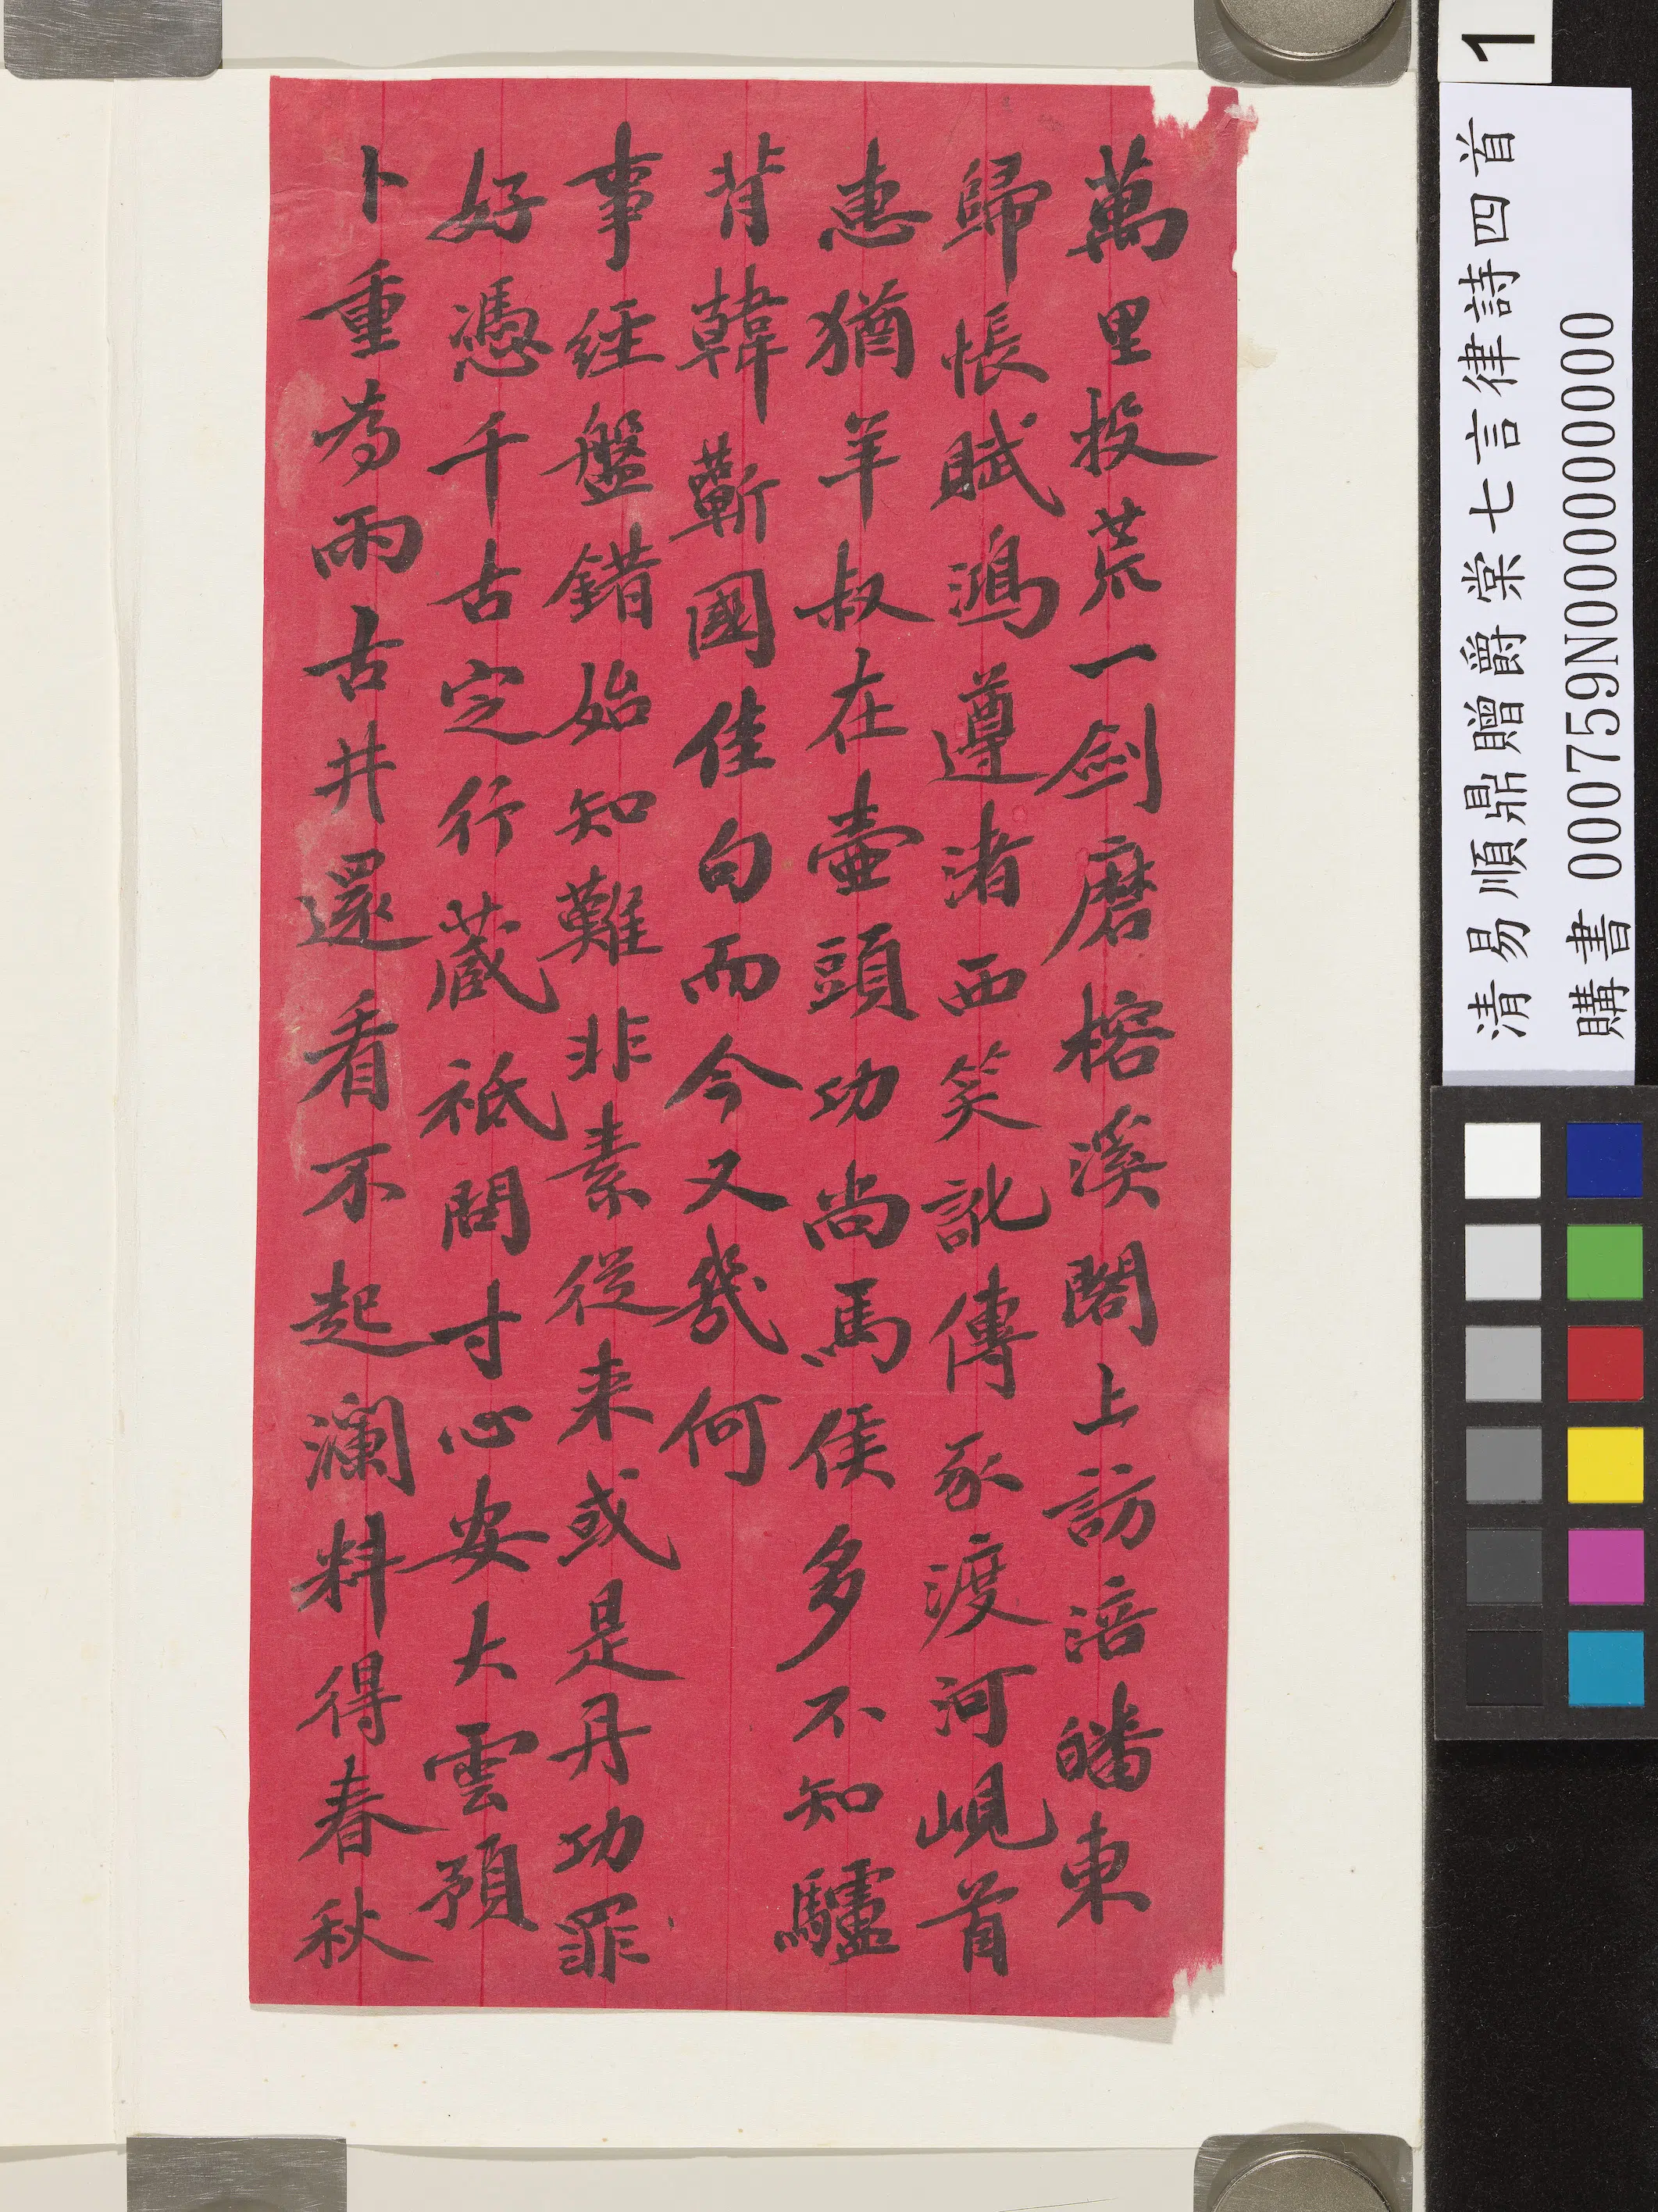 萬里投荒一劍磨榕溪閣上訪涪皤東
歸悵賦鴻遵渚西笑訛傳豕渡河峴首
惠猶羊叔在壺頭功尚馬侯多不知驢
背韓蘄國佳句而今又幾何
事經盤錯始知難非素從来或是丹功罪
好憑千古定行藏祇問寸心安大雲預
卜重為雨古井還看不起瀾料得春秋
1
清易順鼎贈爵棠七言律詩四首
購書 000759N000000000